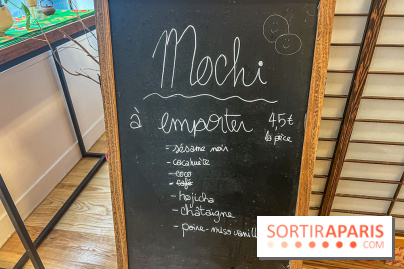 Mochi
à emporter 45€
la pièce
- sésame noir
- cacahuète
- coco
- café
- hojicha
- châtaigne
- poire-miso vanille
SORTIRAPARIS
.COM